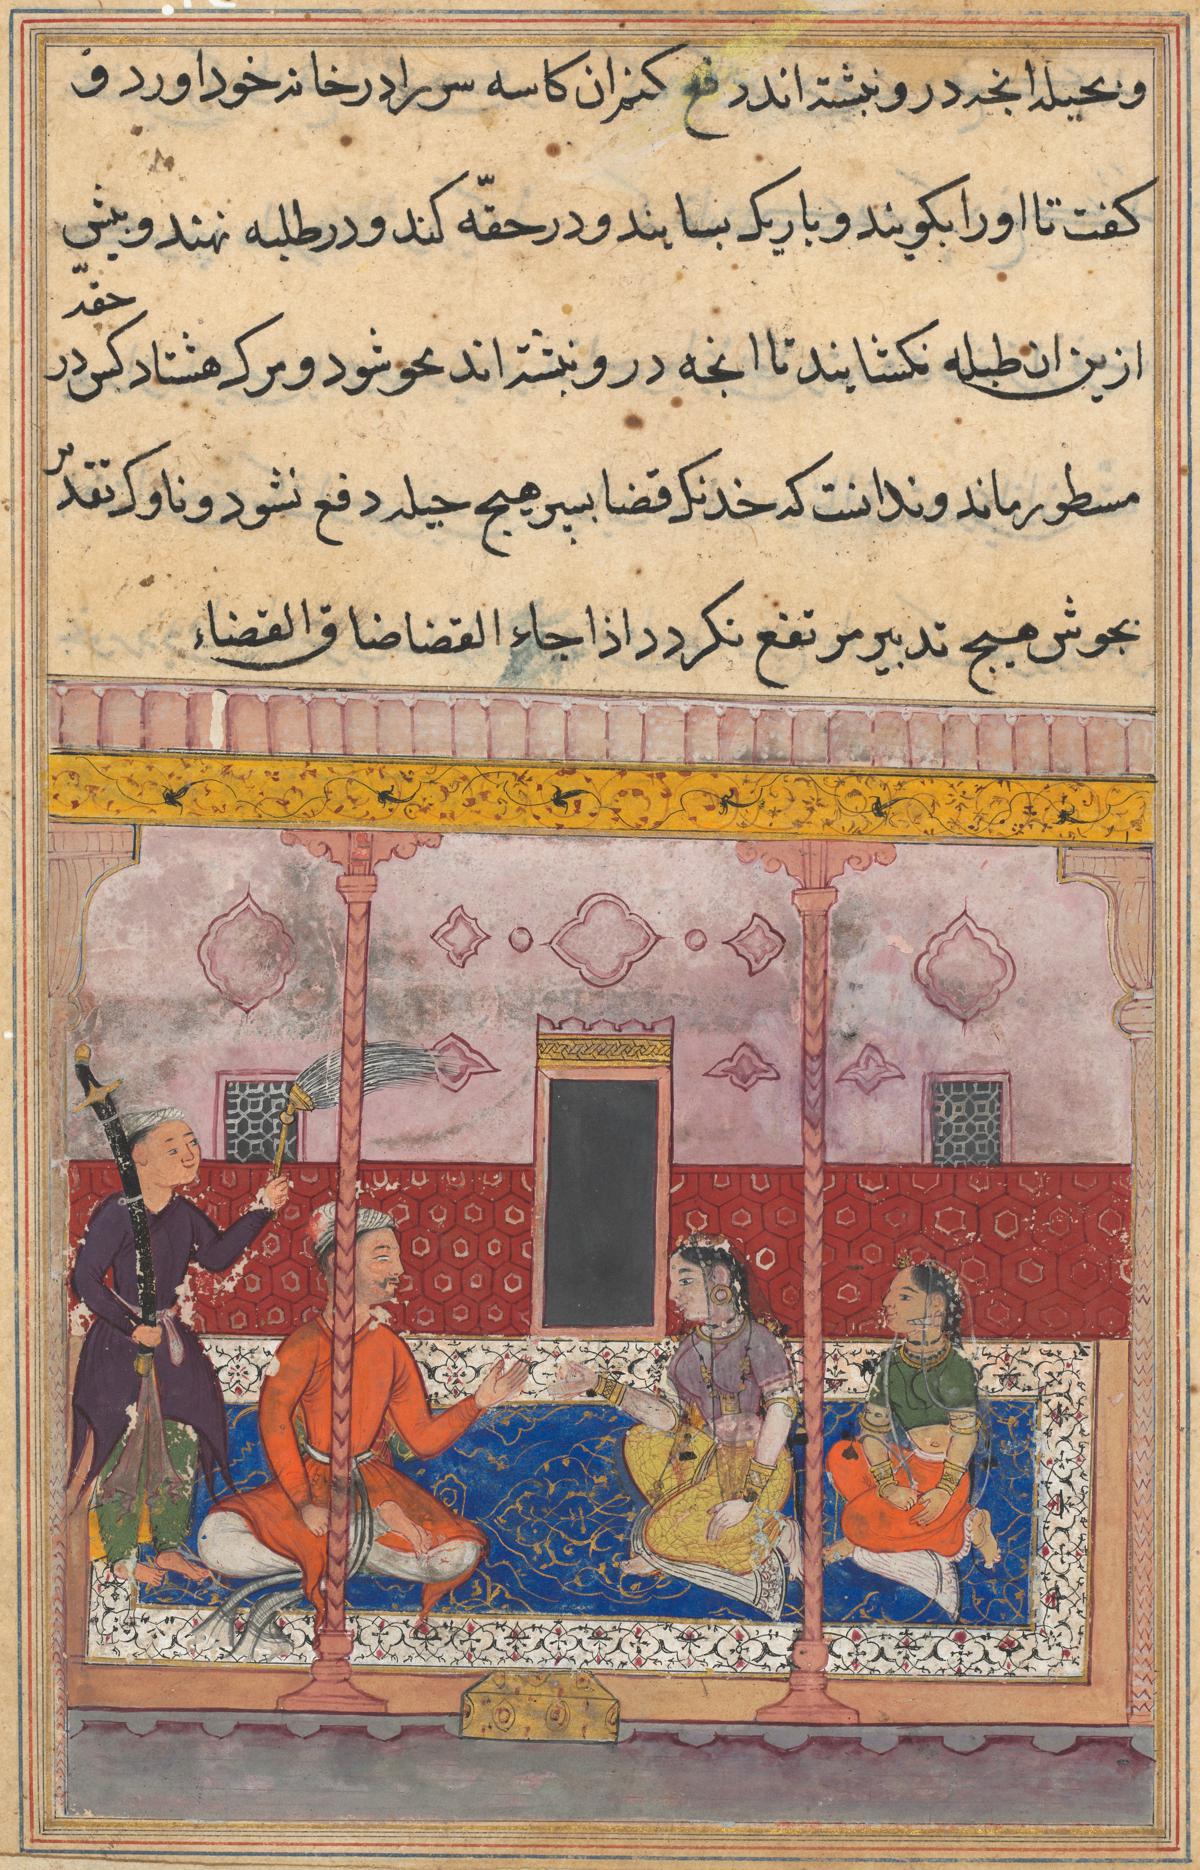 و بحیله انجه درو نبشته اند دفع کنم ان کاسه سر را در خانه خود اورد و
کفت تا اورا بکویند و باریک بسایند و در حقّه کند و در طبله نهند و بیش
حقّه
ازین ان طبله نکشایند تا انجه درو نبشته اند محو شود و مرک هشتاد کس در
مسطور ماند و ندانست که خدنک قضا بسپر هیج حیله دفع نشود و ناوک تقدیر
بجوش هیج تدبیر مرتفع نکردد اذا جاء القضا ضاق القضاء